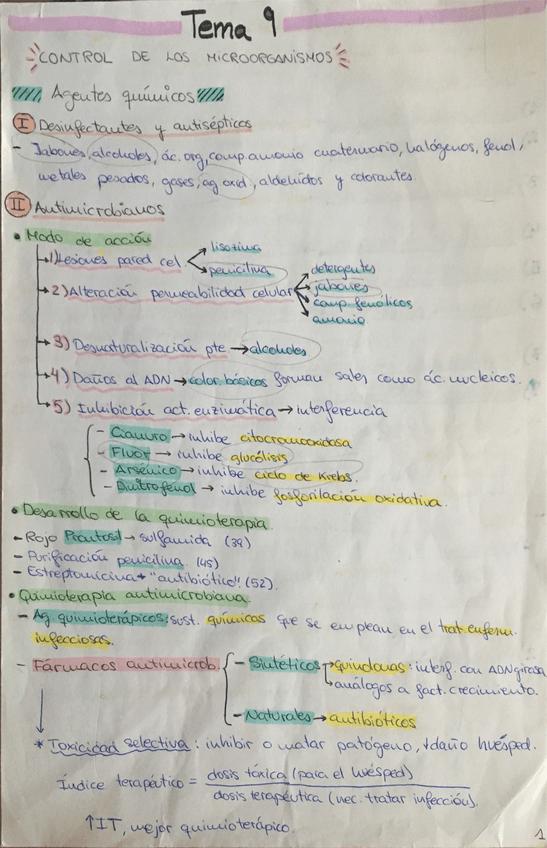 Tema 9
CONTROL DE LOS MICROORGANISMOS
Agentes químicos
I Desinfectantes y antisépticos
- Jabones, alcoholes, ác. org, comp amonio cuaternario, halógenos, fenol,
metales pesados, gases, ag oxid, aldehídos y colorantes.
II Antimicrobianos
• Modo de acción
→ 1) Lesiones pared cel
lisozima
penicilina
→ 2) Alteración permeabilidad celular
detergentes
jabones
comp fenólicos
amonio
→ 3) Desnaturalización pte → alcoholes
→ 4) Daños al ADN → color. básicos forman sales como ác. nucleicos.
→ 5) Inhibición act. enzimática → interferencia
- Cianuro → inhibe citocromooxidasa
- Flúor → inhibe glucólisis
- Arsénico → inhibe ciclo de Krebs.
- Dinitrofenol → inhibe fosforilación oxidativa.
• Desarrollo de la quimioterapia
- Rojo Prontosl → sulfamida (39)
- Purificación penicilina (45)
- Estreptomicina → "antibiótico" (52).
• Quimioterapia antimicrobiana
- Ag. quimioterápicos: sust. químicas que se emplean en el trat. enferm.
infecciosas.
- Fármacos antimicrob.
- Sintéticos → quinolonas: interf. con ADNgirasa
→ análogos a fact. crecimiento.
- Naturales → antibióticos
* Toxicidad selectiva: inhibir o matar patógeno, ↓daño huésped.
Índice terapéutico = dosis tóxica (para el huésped)
dosis terapéutica (nec. tratar infección).
↑IT, mejor quimioterápico.
1